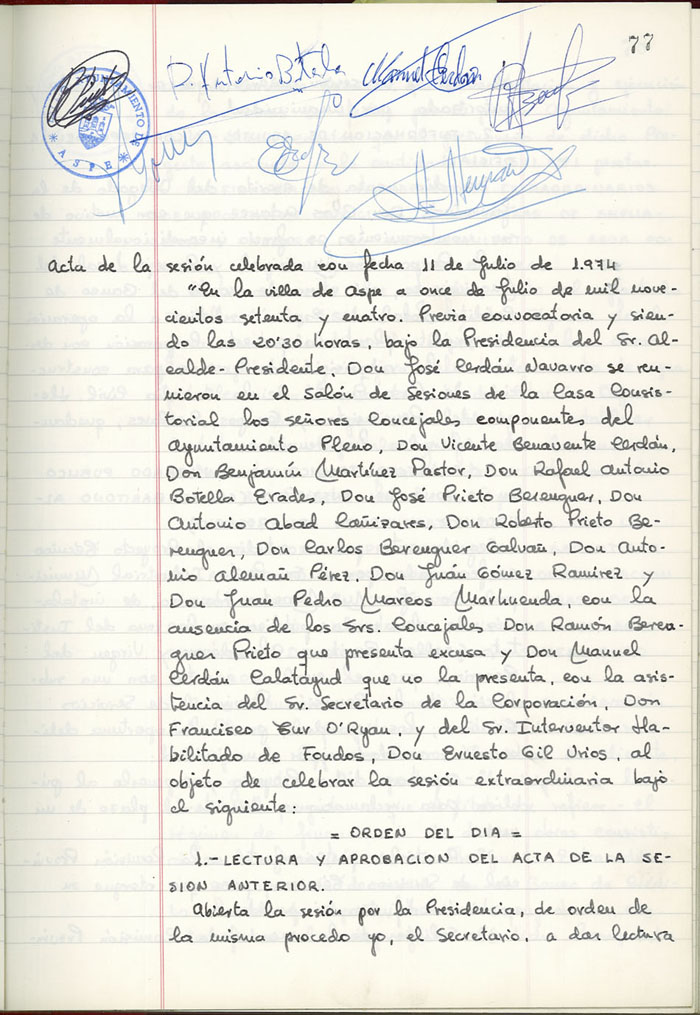 77
AYUNTAMIENTO DE
* ASPE *
Acta de la sesión celebrada con fecha 11 de Julio de 1.974
"En la villa de Aspe a once de Julio de mil nove-
cientos setenta y cuatro. Previa convocatoria y sien-
do las 20'30 horas, bajo la Presidencia del Sr. Al-
calde-Presidente, Don José Cerdán Navarro se reu-
nieron en el Salón de Sesiones de la Casa Consis-
torial los señores Concejales componentes del
Ayuntamiento Pleno, Don Vicente Benavente Cerdán,
Don Benjamín Martínez Pastor, Don Rafael Antonio
Botella Erades, Don José Prieto Berenguer, Don
Antonio Abad Cañizares, Don Roberto Prieto Be-
renguer, Don Carlos Berenguer Galvañ, Don Anto-
nio Alemañ Pérez, Don Juán Gómez Ramirez y
Don Juan Pedro Marcos Marhuenda, con la
ausencia de los Srs. Concejales Don Ramón Beren-
guer Prieto que presenta excusa y Don Manuel
Cerdán Calatayud que no la presenta, con la asis-
tencia del Sr. Secretario de la Corporación, Don
Francisco Cur O'Ryan, y del Sr. Interventor Ha-
bilitado de Fondos, Don Ernesto Gil Urios, al
objeto de celebrar la sesión extraordinaria bajo
el siguiente:
= ORDEN DEL DIA =
1.- LECTURA Y APROBACION DEL ACTA DE LA SE-
SION ANTERIOR.
Abierta la sesión por la Presidencia, de orden de
la misma procedo yo, el Secretario, a dar lectura